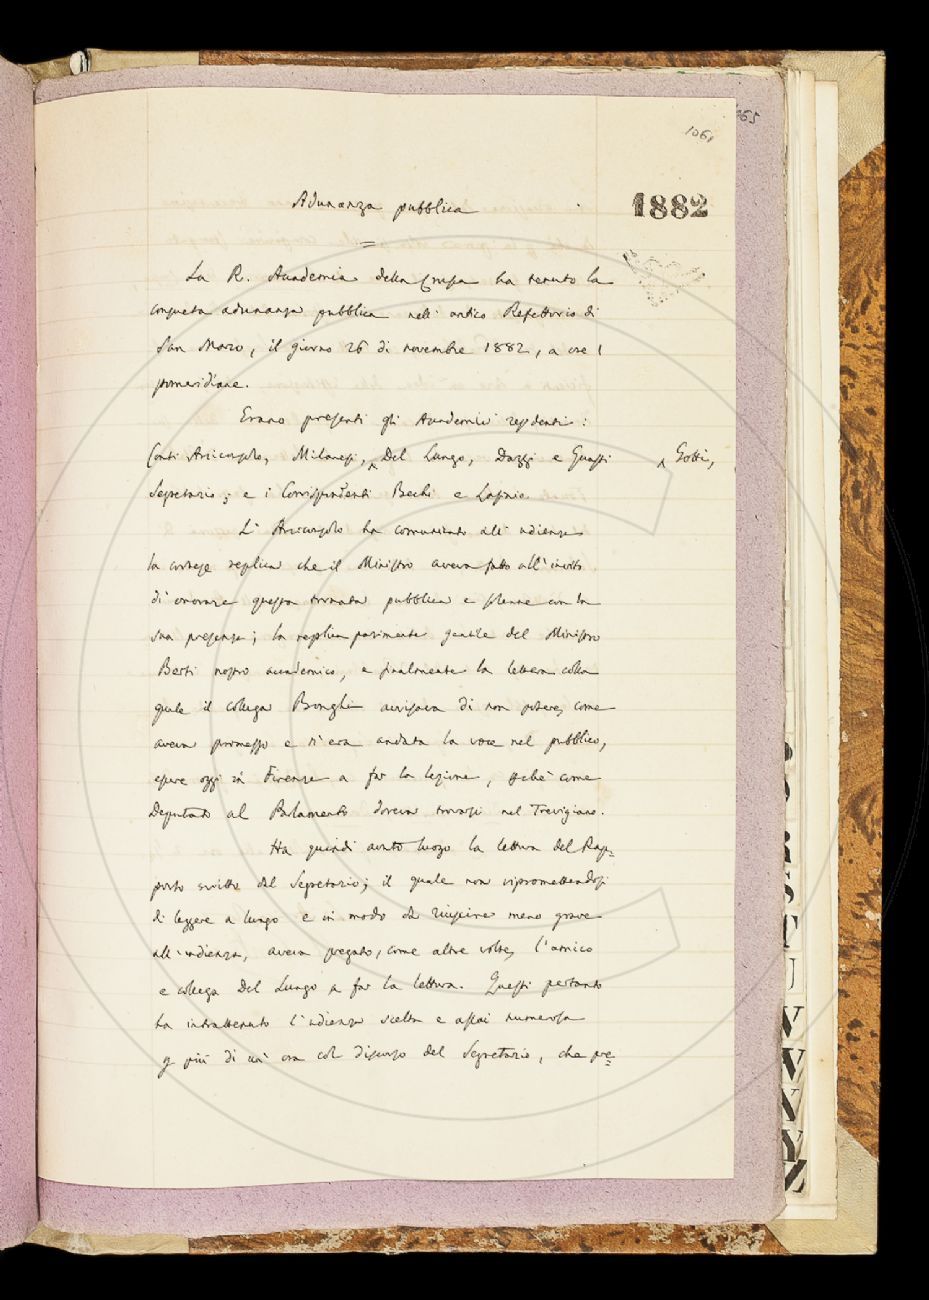 1061
65
Adunanza pubblica
1882
La R. Accademia della Crusca ha tenuto la
consueta adunanza pubblica nell'antico Refettorio di
San Marco, il giorno 26 di novembre 1882, a ore 1
pomeridiane.
Erano presenti gli Accademici residenti:
Conti Arciconsolo, Milanesi, ^ Del Lungo, Dazzi e Guasti
^ Gotti,
Segretario; e i Corrispondenti Bechi e Lasinio
L'Arciconsolo ha comunicato all'udienza
la cortese replica che il Ministro aveva fatto all'invito
di onorare questa tornata pubblica e solenne con la
sua presenza; la replica parimente gentile del Ministro
Berti nostro accademico, e finalmente la lettera colla
quale il collega Bonghi avvisava di non potere, come
aveva promesso e n'era andata la voce nel pubblico,
essere oggi in Firenze a far la lezione, chè come
Deputato al Parlamento doveva trovarsi nel Trevigiano.
Ha quindi avuto luogo la lettura del Rap=
porto scritto dal Segretario; il quale non ripromettendosi
di leggere a lungo e in modo da riuscire meno grave
all'udienza, aveva pregato, come altre volte, l'amico
e collega Del Lungo a far la lettura. Questi pertanto
ha intrattenuto l'udienza scelta e assai numerosa
p più di un'ora col discorso del Segretario, che pre=
P
Q
R
S
T
U
V
W
X
Y
Z